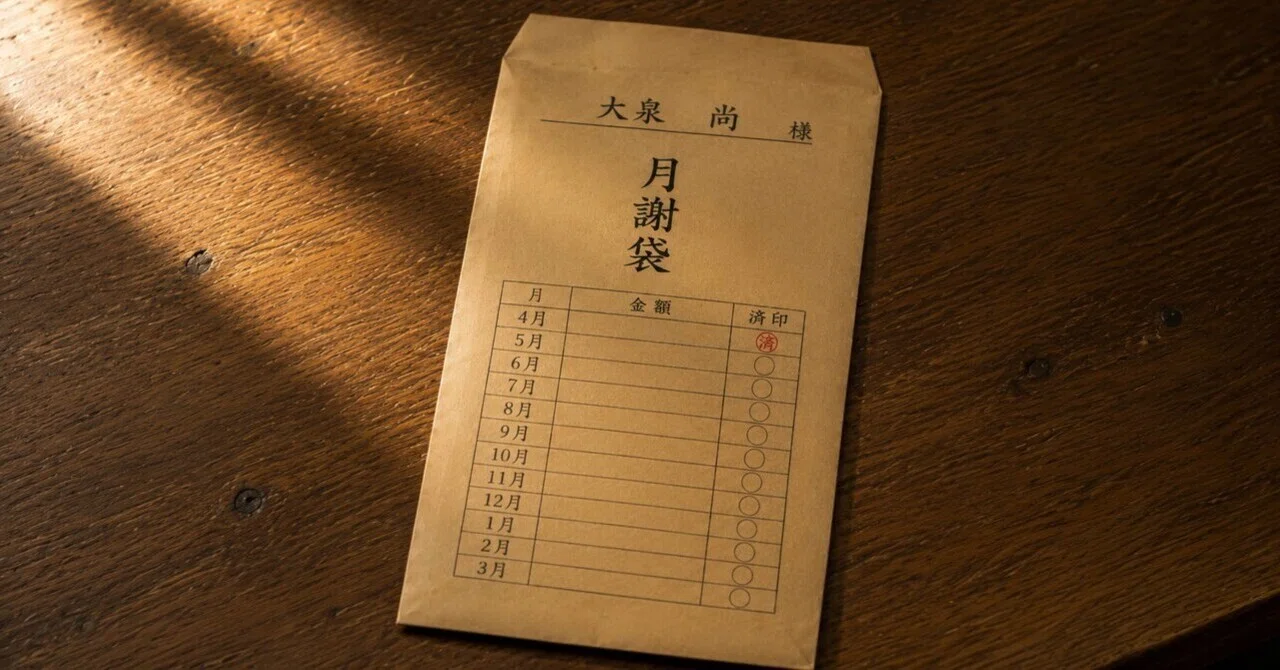 大泉 尚 様
月謝袋
月 金額 済印
4月
5月 済
6月
7月
8月
9月
10月
11月
12月
1月
2月
3月